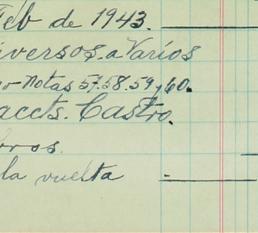 Feb de 1943.
iversos a Varios
Notas 57.58.59, y 60.
accts. Castro.
bros.
la vuelta